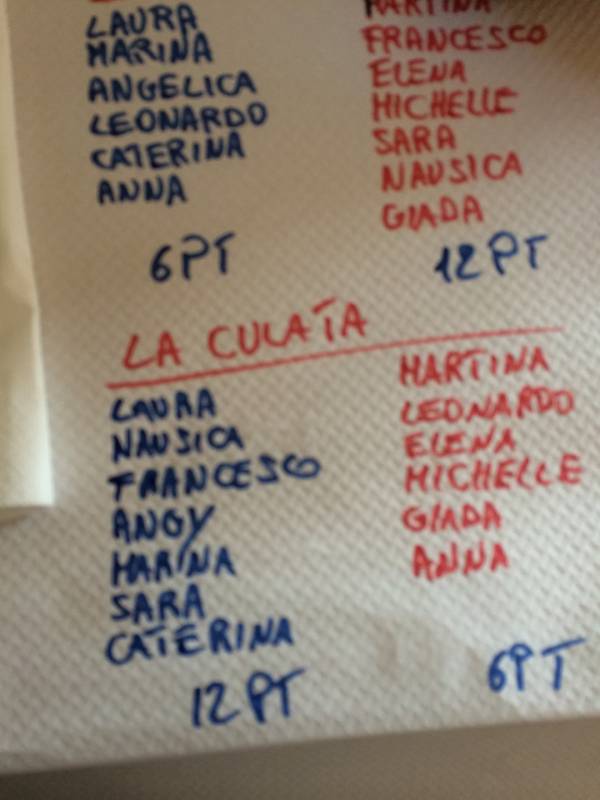 LAURA
MARINA
ANGELICA
LEONARDO
CATERINA
ANNA
6 PT
MARTINA
FRANCESCO
ELENA
MICHELLE
SARA
NAUSICA
GIADA
12 PT
LA CULATA
LAURA
NAUSICA
FRANCESCO
ANGY
MARINA
SARA
CATERINA
12 PT
MARTINA
LEONARDO
ELENA
MICHELLE
GIADA
ANNA
6 PT